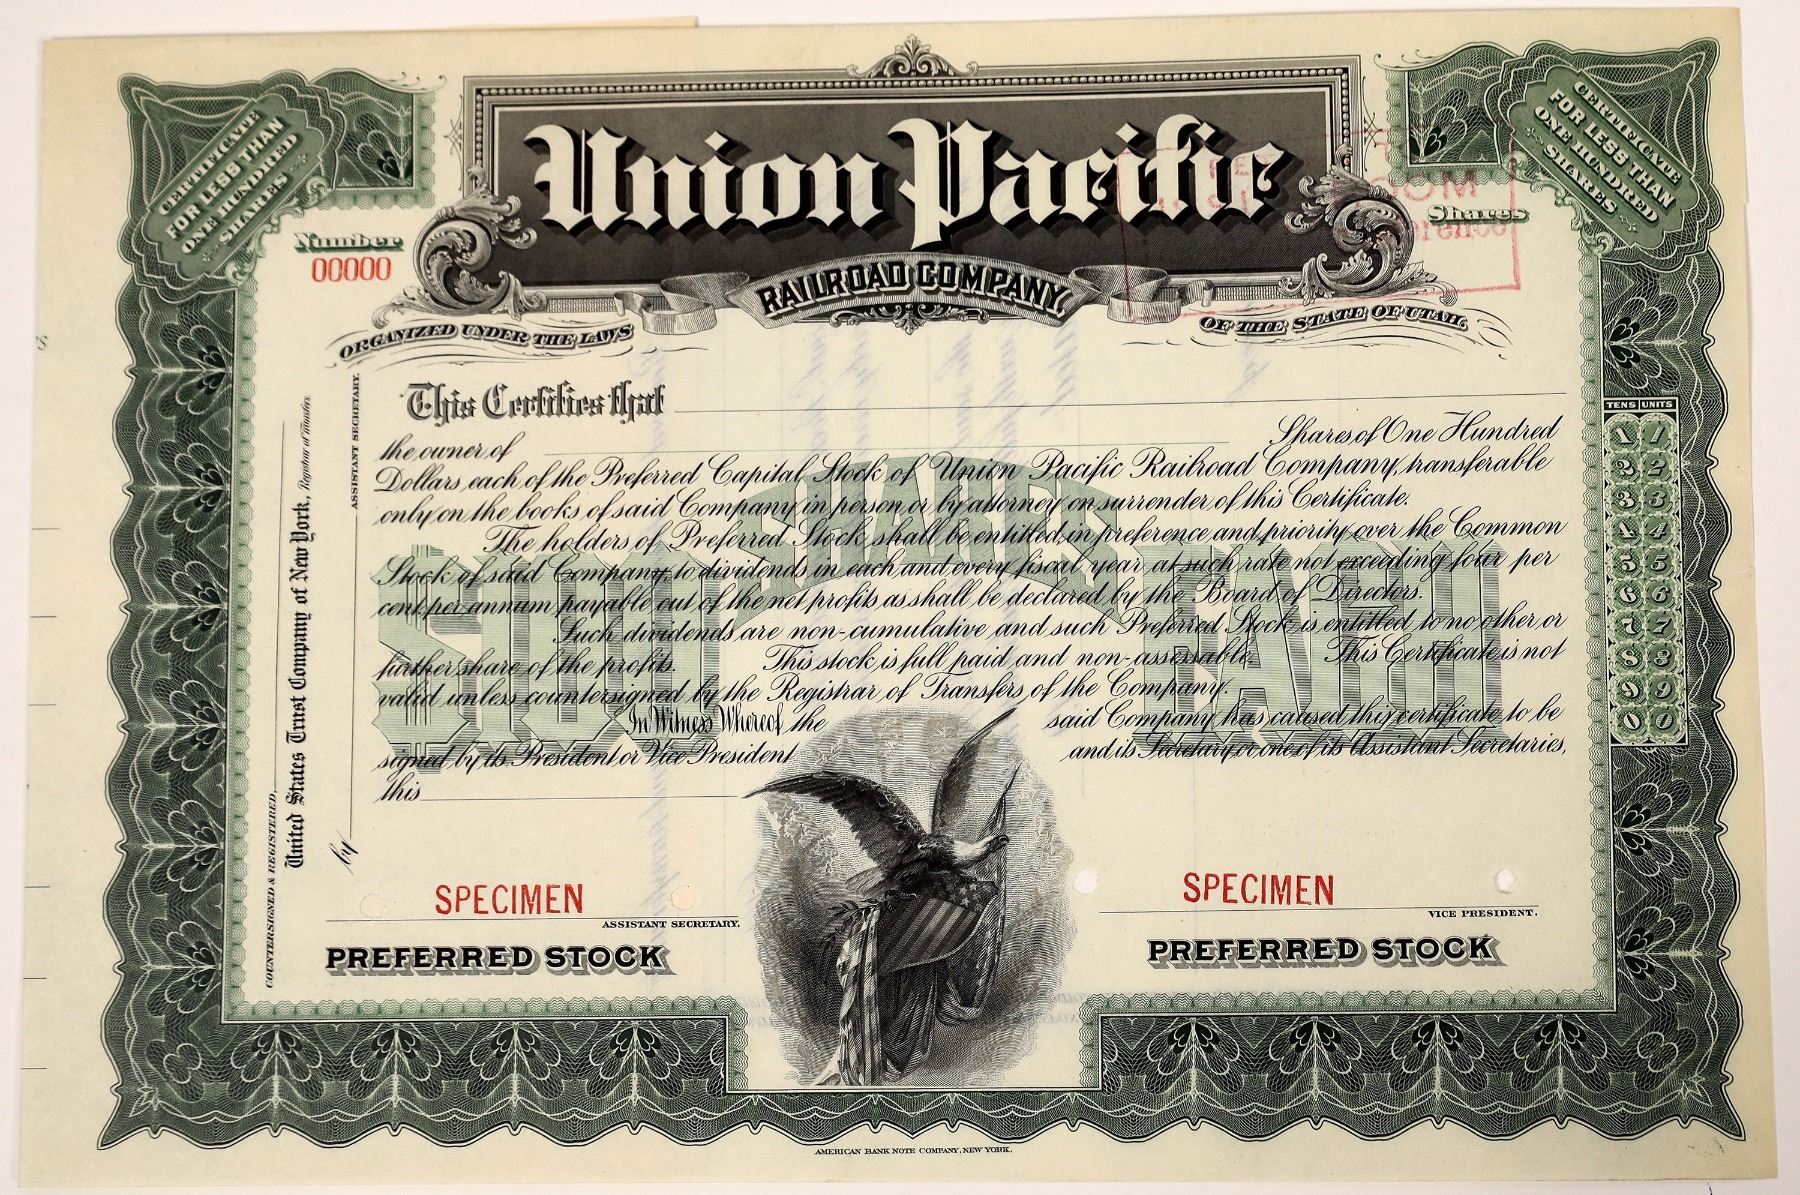 CERTIFICATE
FOR LESS THAN
ONE HUNDRED
SHARES
Union Pacific
RAILROAD COMPANY.
CERTIFICATE
FOR LESS THAN
ONE HUNDRED
SHARES
Number
00000
Shares
ROOM
ORGANIZED UNDER THE LAWS
OF THE STATE OF UTAH.
This Certifies that
the owner of
Shares of One Hundred
Dollars each of the Preferred Capital Stock of Union Pacific Railroad Company, transferable
only on the books of said Company in person or by attorney on surrender of this Certificate.
The holders of Preferred Stock shall be entitled, in preference and priority over the Common
Stock of said Company, to dividends in each and every fiscal year at such rate not exceeding four per
cent per annum payable out of the net profits as shall be declared by the Board of Directors.
Such dividends are non-cumulative and such Preferred Stock is entitled to no other or
further share of the profits. This stock is full paid and non-assessable. This Certificate is not
valid unless countersigned by the Registrar of Transfers of the Company.
In Witness Whereof the said Company has caused this certificate to be
signed by its President or Vice President and its Secretary or one of its Assistant Secretaries,
this
SHARES
$100
EACH
TENS UNITS
1 1
2 2
3 3
4 4
5 5
6 6
7 7
8 8
9 9
0 0
COUNTERSIGNED & REGISTERED,
United States Trust Company of New York, Registrar of Transfers.
by
ASSISTANT SECRETARY.
SPECIMEN
ASSISTANT SECRETARY.
SPECIMEN
VICE PRESIDENT.
PREFERRED STOCK
PREFERRED STOCK
AMERICAN BANK NOTE COMPANY, NEW YORK.